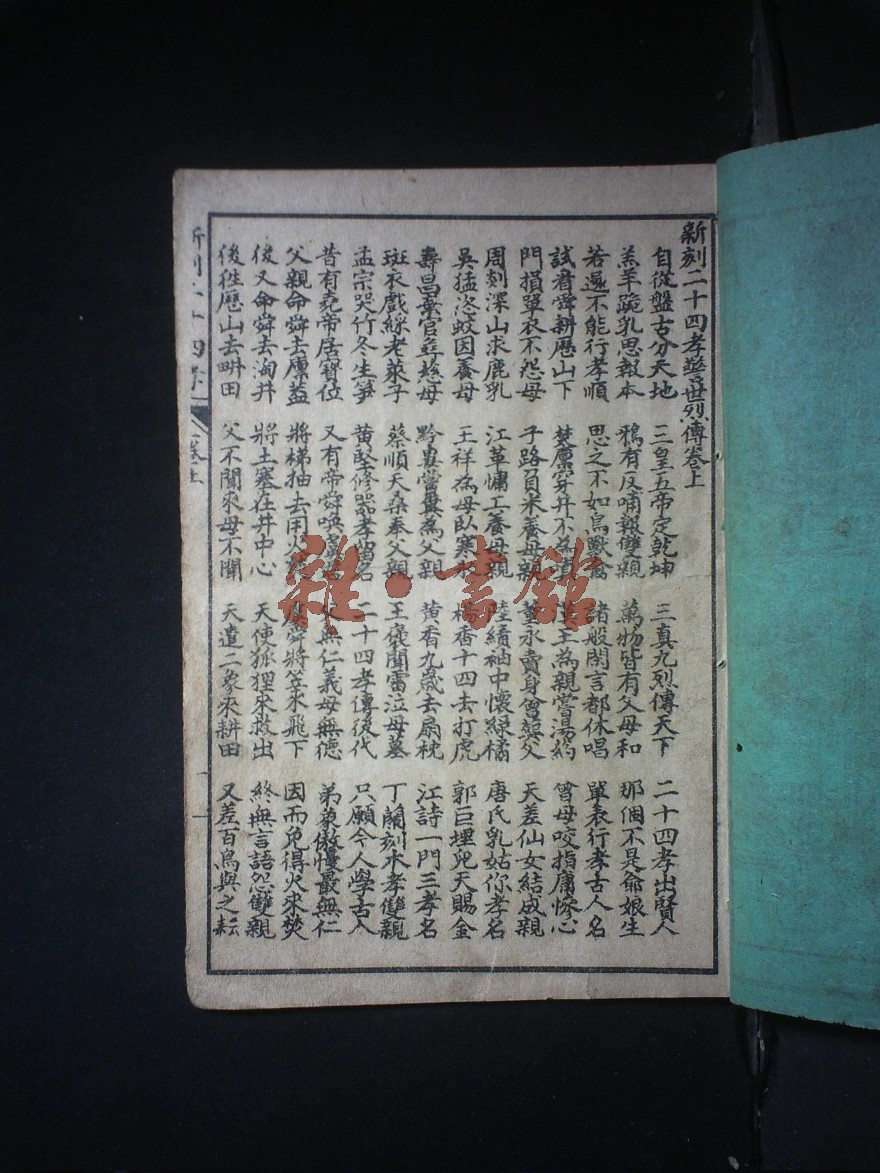 新刻二十四孝警世烈傳卷上
自從盤古分天地 三皇五帝定乾坤 三真九烈傳天下 二十四孝出賢人
羔羊跪乳思報本 鴉有反哺報雙親 萬物皆有父母和 那個不是爺娘生
若還不能行孝順 思之不如鳥獸禽 諸般閑言都休唱 單表行孝古人名
試看舜耕歷山下 焚廩穿井不 王為親嘗湯約 曾母咬指痛慘心
門損單衣不怨母 子路負米養母親 董永賣身會葬父 天差仙女結成親
周剡深山求鹿乳 江革慵工養母親 陸績袖中懷綠橘 唐氏乳姑你孝名
吳猛恣蚊因養母 王祥為母臥寒氷 楊香十四去打虎 郭巨埋兒天賜金
壽昌棄官尋慈母 黔婁嘗糞為父親 黃香九歲去扇枕 江詩一門三孝名
斑衣戲綵老萊子 蔡順天桑奉父親 王褒聞雷泣母墓 丁蘭刻木孝雙親
孟宗哭竹冬生筍 黃堅修器孝留名 二十四孝傳後代 只願今人學古人
昔有堯帝居寶位 又有帝舜喚 父無仁義母無德 弟象傲慢最無仁
父親命舜去廩蓋 將梯抽去用火 舜將笠來飛下 因而免得火來焚
後又命舜去淘井 將土塞在井中心 天使狐狸來救出 終無言語怨雙親
後徃歷山去畊田 父不聞來母不聞 天遣二象來耕田 又差百鳥與之耘
二十四孝 卷上
一
雜·書館